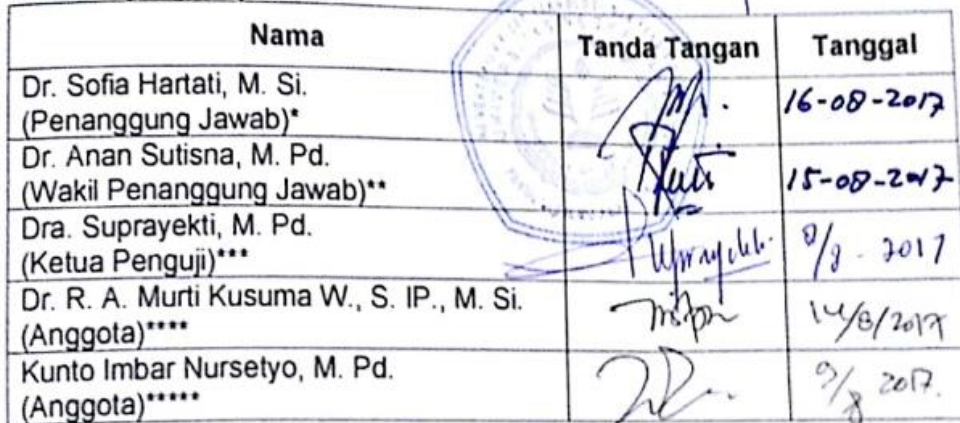 Nama Tanda Tangan Tanggal
Dr. Sofia Hartati, M. Si.
(Penanggung Jawab)* 16-08-2017
Dr. Anan Sutisna, M. Pd.
(Wakil Penanggung Jawab)** 15-08-2017
Dra. Suprayekti, M. Pd.
(Ketua Penguji)*** 8/8 - 2017
Dr. R. A. Murti Kusuma W., S. IP., M. Si.
(Anggota)**** 14/8/2017
Kunto Imbar Nursetyo, M. Pd.
(Anggota)***** 9/8 2017.